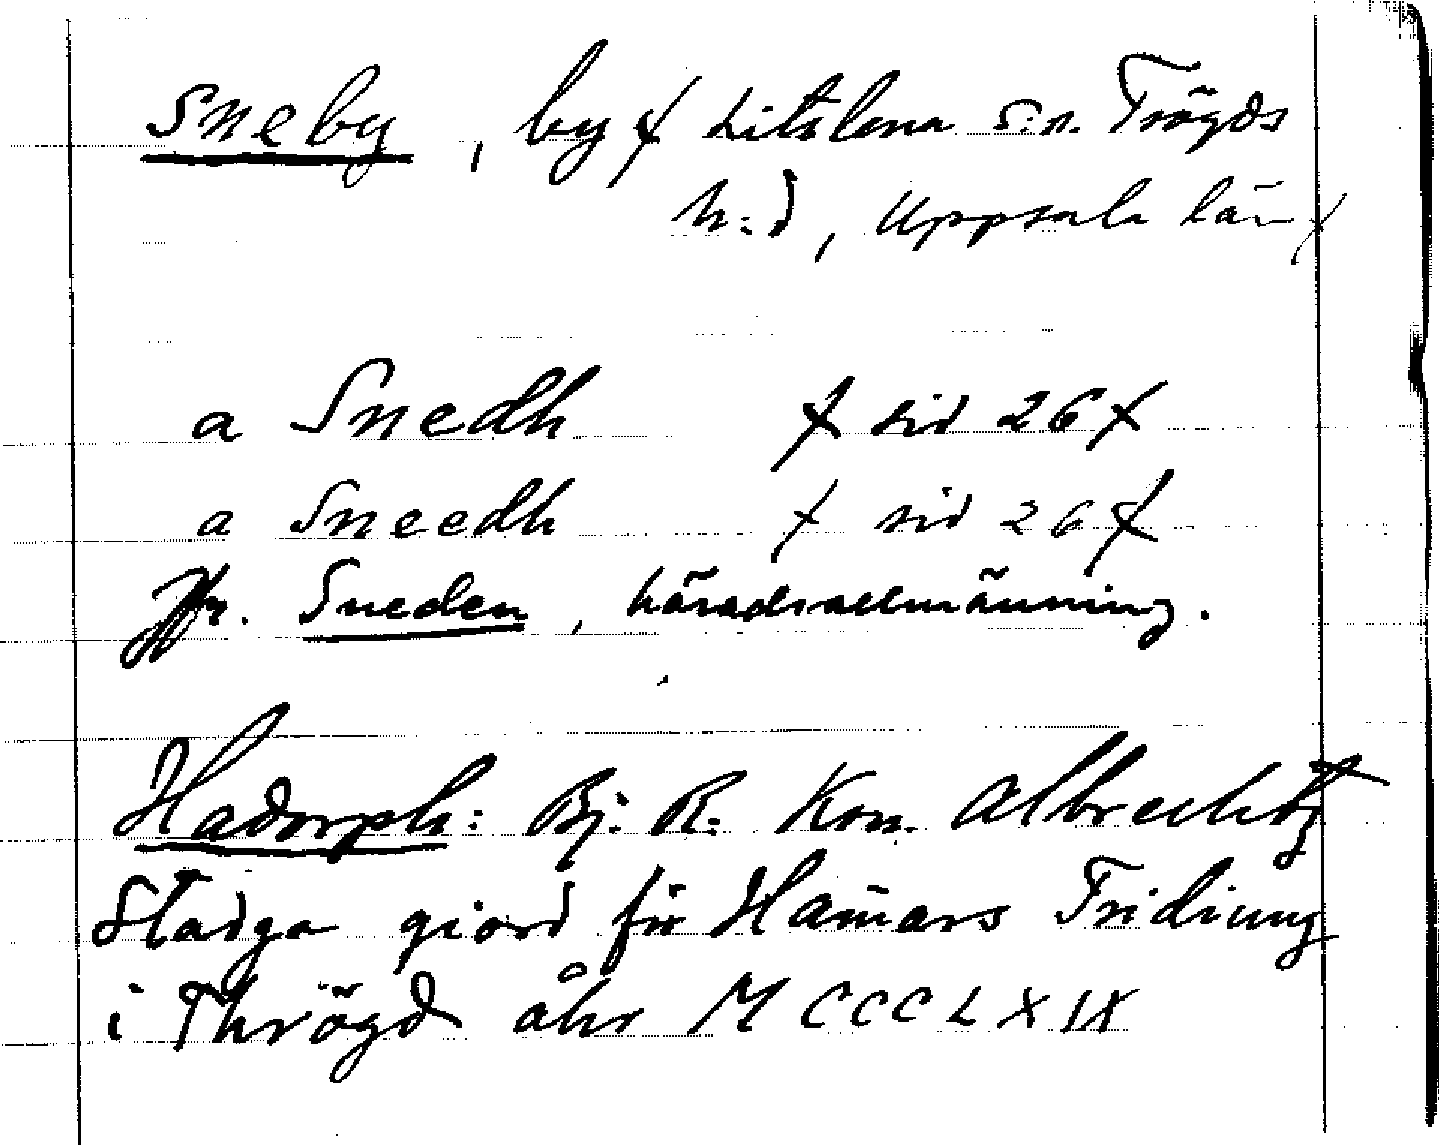 Sneby, by ⨍ Litslena s:n. Trögds
h:d, Uppsala län ⨍
a Snedh ⨍ sid 26 ⨍
a Sneedh ⨍ sid 26 ⨍
Jfr. Sneden, häradsallmänning.
Hadorph: Bj. R. Kon. Albrechtz
Stadga giord för Ham̄ars Tridiung
i Thrögd åhr MCCCLXIX